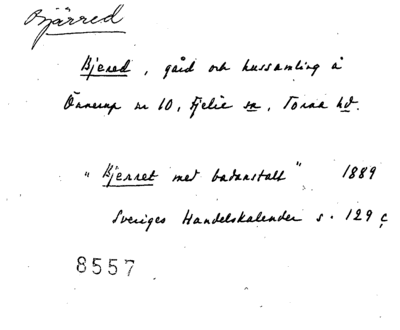 Bjärred
Bjered, gård och hussamling å
Önnerup nr 10, Fjelie sn, Torna hd.
"Bjerret med badanstalt" 1889
Sveriges Handelskalender s. 129 ç
8557